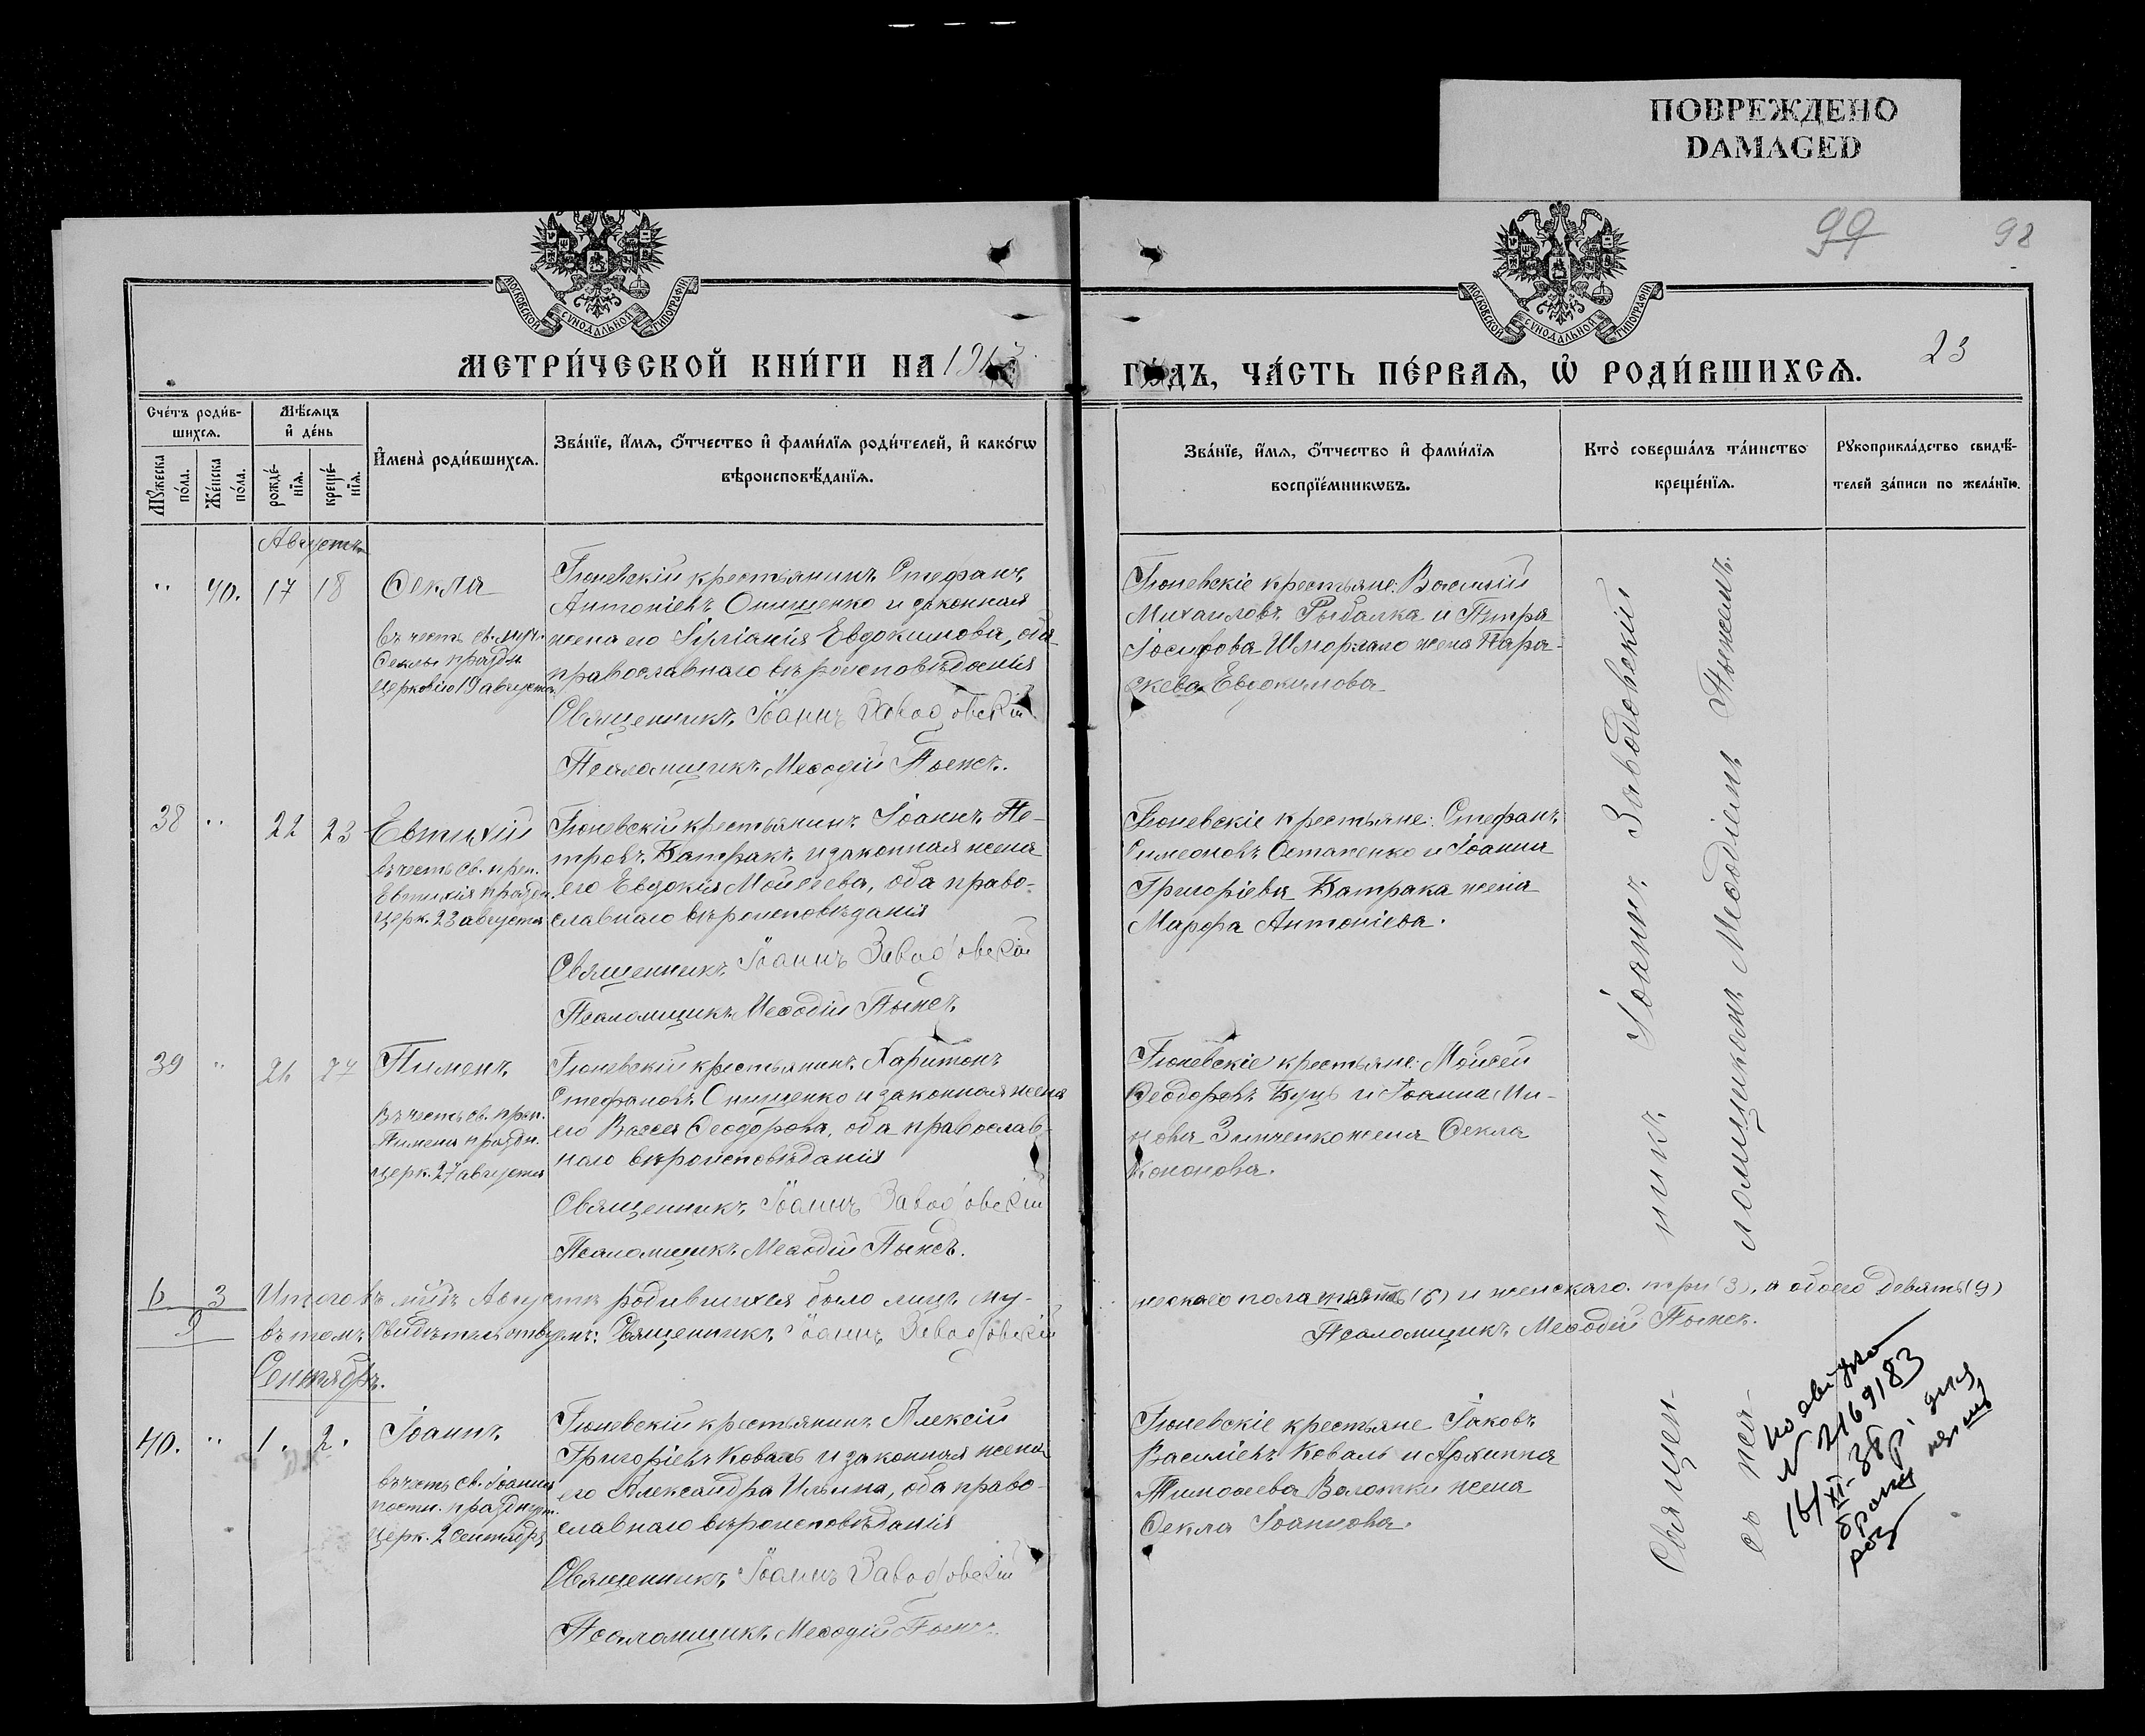 ПОВРЕЖДЕНО
DAMAGED
99
98
23
МОСКОВСКОЙ СѴНОДАЛЬНОЙ ТИПОГРАФІИ
МОСКОВСКОЙ СѴНОДАЛЬНОЙ ТИПОГРАФІИ
МЕТРИ́ЧЕСКОЙ КНИ́ГИ НА 1913
ГО́ДЪ, ЧА́СТЬ ПЕ́РВАѦ, Ѡ҆ РОДИ́ВШИХСѦ.
Сче́тъ роди́в-
шихсѧ.
Мꙋ́жеска по́ла.
Же́нска по́ла.
Мѣ́сѧцъ
и҆ де́нь
рожде́-
нїѧ.
креще́-
нїѧ.
И҆мена̀ роди́вшихсѧ.
Зва́нїе, и҆́мѧ, ѻ҆́тчество и҆ фами́лїѧ роди́телей, и҆ како́гѡ
вѣроисповѣ́данїѧ.
Зва́нїе, и҆́мѧ, ѻ҆́тчество и҆ фами́лїѧ
воспрїе́мникѡвъ.
Кто̀ соверша́лъ та́инство
креще́нїѧ.
Рꙋкоприкла́дство свидѣ́-
телей за́писи по жела́нїю.
Августъ
" 40. 17 18 Ѳекла
въ честь св. муч.
Ѳеклы праздн.
церковію 19 августа
крестьянинъ Стефанъ
Антоніевъ Онищенко и законная
жена его Евдокимова, оба
православнаго вѣроисповѣданія
Священникъ Іоаннъ Заводовскій
Псаломщикъ Меѳодій
крестьяне: Василій
Михаиловъ Рыбалка и
Іосифова жена Пара-
скева Евдокимова
38 " 22 23 Евтихій
въ честь св. преп.
Евтихія праздн.
церк. 23 августа
крестьянинъ Іоаннъ Пе-
тровъ Батракъ и законная жена
его Евдокія Моисеева, оба право-
славнаго вѣроисповѣданія
Священникъ Іоаннъ Заводовскій
Псаломщикъ Меѳодій
крестьяне: Стефанъ
Симеоновъ Остапенко и Іоанна
Григоріева Батрака жена
Марфа Антоніева.
39 " 26 27 Пименъ
Въ честь св. преп.
Пимена праздн.
церк. 27 августа
крестьянинъ Харитонъ
Стефановъ Онищенко и законная жена
его Васса Ѳеодорова, оба православ-
наго вѣроисповѣданія
Священникъ Іоаннъ Заводовскій
Псаломщикъ Меѳодій
крестьяне: Моисей
Ѳеодоровъ Буць и Іоанна
Зинченко жена Ѳекла
Кононова.
6 3 Итого въ м-цѣ Августѣ родившихся было лицъ му-
жескаго пола (6) и женскаго три (3), а обоего девять (9)
9
въ томъ свидѣтельствуемъ: Священникъ Іоаннъ Заводовскій
Псаломщикъ Меѳодій
Сентябрь.
40. " 1. 2. Іоаннъ
въ честь св. Іоанна
постн. празднуем.
церк. 2 сентября
крестьянинъ Алексій
Григоріевъ Коваль и законная жена
его Александра Ильина, оба право-
славнаго вѣроисповѣданія
Священникъ Іоаннъ Заводовскій
Псаломщикъ Меѳодій
крестьяне Іаковъ
Василіевъ Коваль и Архиппа
Тимоѳеева жена
Ѳекла Іоаннова.
Священ-
никъ Іоаннъ Заводовскій
съ пса-
ломщикомъ Меѳодіемъ
№ 2169183
16/XI-38р.